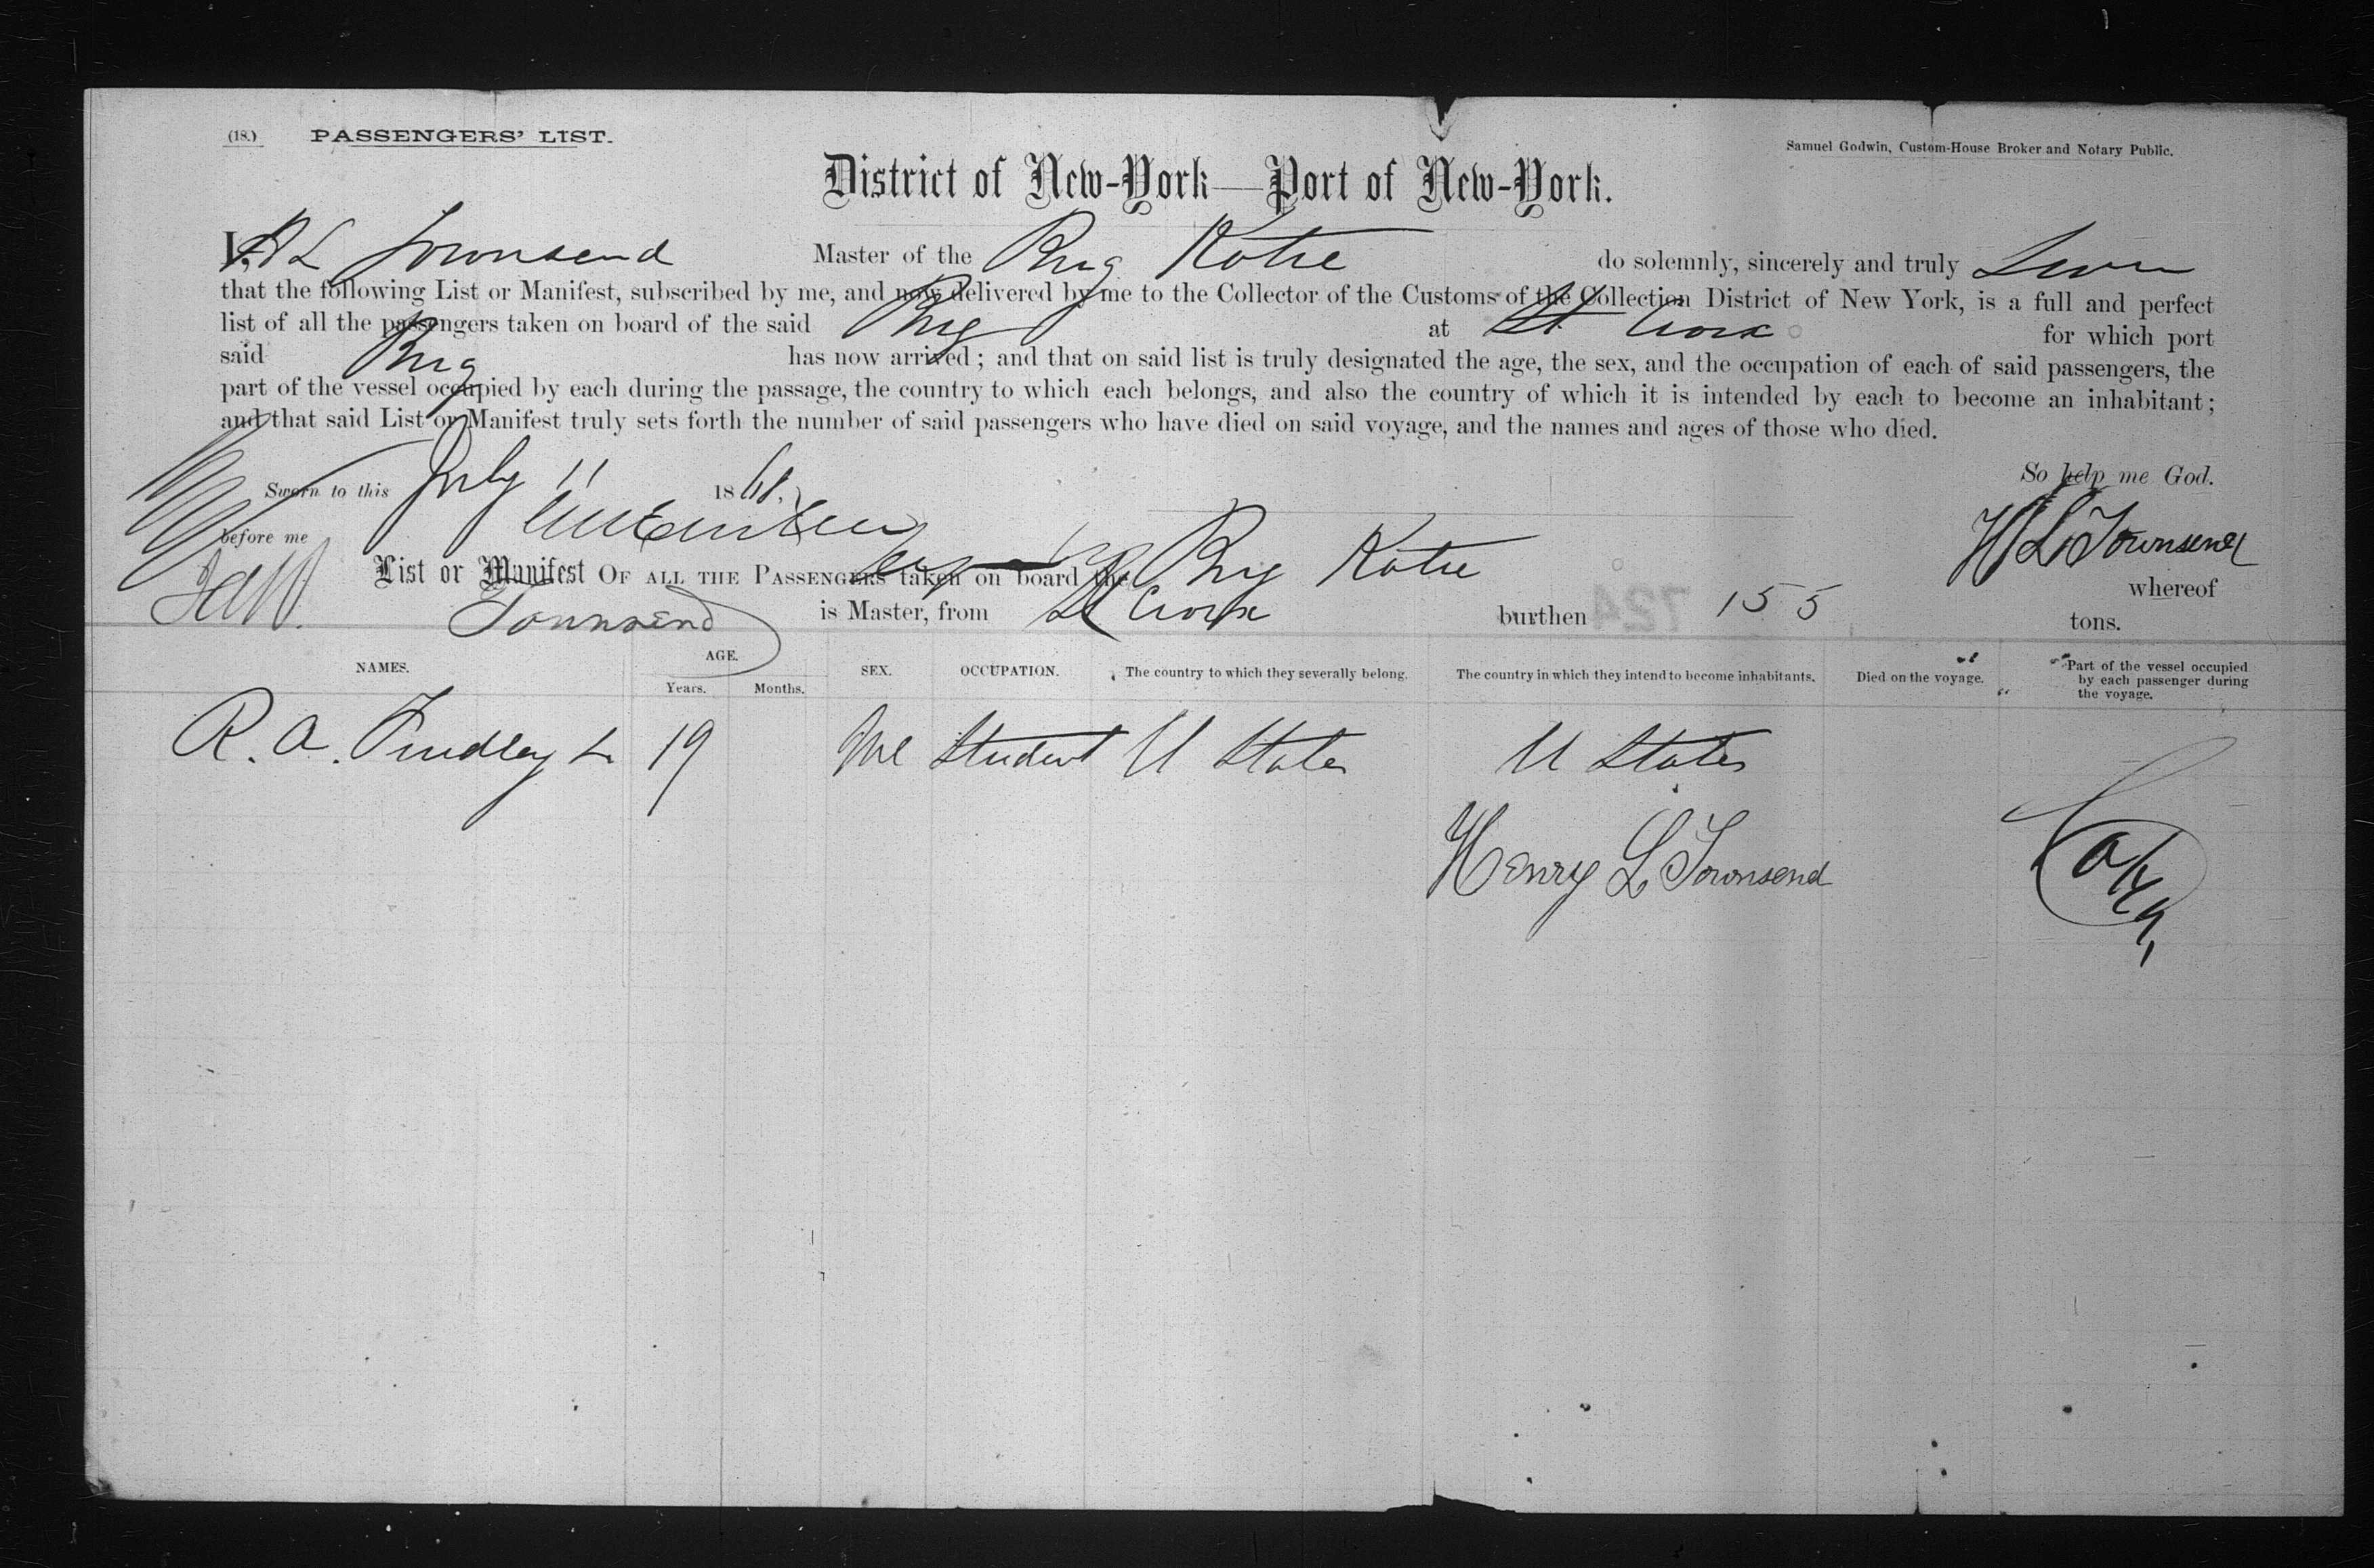 (18.) PASSENGERS' LIST.
Samuel Godwin, Custom-House Broker and Notary Public.
District of New-York—Port of New-York.
I, H L Townsend Master of the Brig Katie do solemnly, sincerely and truly Swear
that the following List or Manifest, subscribed by me, and now delivered by me to the Collector of the Customs of the Collection District of New York, is a full and perfect
list of all the passengers taken on board of the said Brig at St Croix for which port
said Brig has now arrived; and that on said list is truly designated the age, the sex, and the occupation of each of said passengers, the
part of the vessel occupied by each during the passage, the country to which each belongs, and also the country of which it is intended by each to become an inhabitant;
and that said List or Manifest truly sets forth the number of said passengers who have died on said voyage, and the names and ages of those who died.
So help me God.
Sworn to this July 11 1868.
before me
H L Townsend
List or Manifest OF ALL THE PASSENGERS taken on board the Brig Katie whereof
Townsend is Master, from St Croix burthen 155 tons.
724
NAMES. AGE. SEX. OCCUPATION. The country to which they severally belong. The country in which they intend to become inhabitants. Died on the voyage. Part of the vessel occupied by each passenger during the voyage.
Years. Months.
R. A. Findley 19 Me Student U States U States
Henry L Townsend